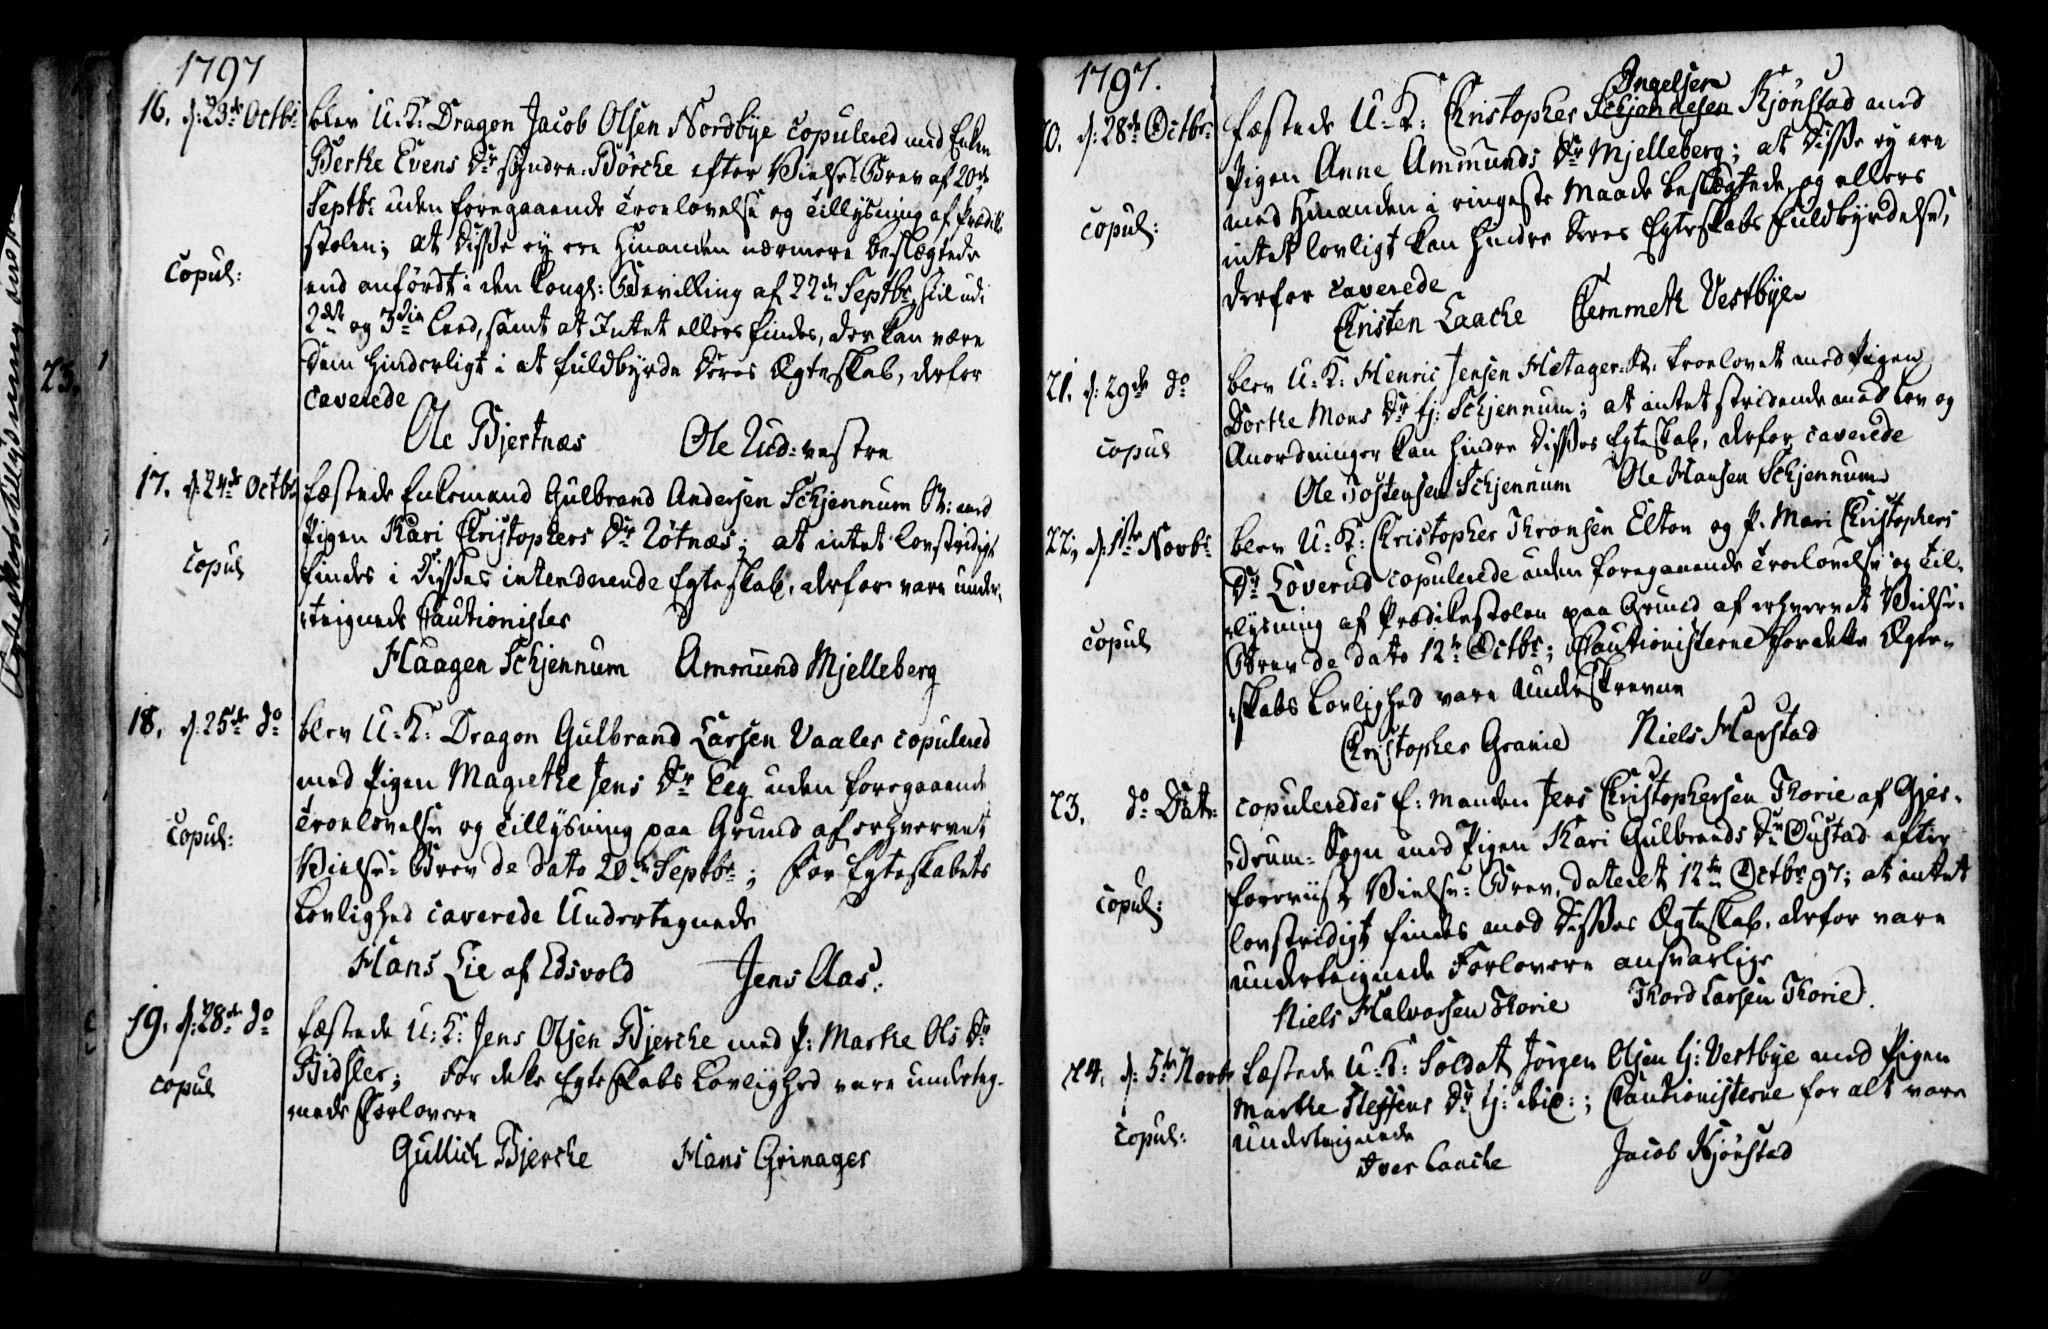 1797
16. d: 23de Octbr. blev U: K: Dragon Jacob Olsen Nordbye copulered med Enken
Berthe Evens Dr. Søndre-Børche efter Vielse-Brev af 20de
Septbr. uden foregaaende Troelovelse og Tillysning af Prædike-
stolen; at Disse ey ere hinanden nærmere beslægtede
copul:
end anført i den Kongl: Bevilling af 22de Septbr.
2det og 3die Leed, samt at Intet ellers findes, der kan være
Dem hinderligt i at fuldbyrde Deres Ægteskab, derfor
caverede
Ole Bjertnæs Ole Ud: vestre
17. d: 24de Octbr. fæstede Enkemand Gulbrand Andersen Schjennum med
Pigen Kari Christophers Dr. Løtnæs; at intet lovstridigt
copul
findes i Disses intenderende Egteskab, derfor vare under-
-teignede Cautionister
Haagen Schjennum Ammund Mjelleberg
18. d: 25de do blev U: K: Dragon Gulbrand Larsen Vaaler copulered
med Pigen Magrethe Jens Dr. Eeg uden foregaaende
Troelovelse og Tillysning paa Grund af erhvervet
copul:
Vielse-Brev de dato 20de Septbr.; For Egteskabets
Lovlighed caverede Undertegnede
Hans Lie af Edsvold Jens Aas.
19. d: 28de do fæstede U: K: Jens Olsen Bjerche med P: Marthe Ols Dr.
copul
Bidsler; For dette Egteskabs Lovlighed vare underteg-
nede Forlovere
Gullich Bjerche Hans Grinager
1797.
Ingelsen
20. d: 28de Octbr. fæstede U: K: Christopher Schjønnesen Kjønstad med
Pigen Anne Ammunds Dr. Mjelleberg; at Disse ey ere
med hinanden i ringeste Maade beslægtede, og ellers
copul:
intet lovligt kan hindre Deres Egteskabs Fuldbyrdelse,
derfor caverede
Christen Laache Clemmeth Vestbye
21. d: 29de do blev U: K: Henric Jensen troelovet med Pigen
Dorthe Mons Dr. tj: Schjennum; at intet stridende mod Lov og
copul
Anordninger kan hindre Disses Egteskab, derfor caverede
Ole Tostensen Schjennum Ole Hansen Schjennum
22. d: 1ste Novbr. blev U: K: Christopher Thronsen Elton og P. Mari Christophers
Dr. Løverud copulerede uden foregaaende Troelovelse og Til-
-lysning af Prædikestolen paa Grund af erhvervet Vielse-
copul
Brev de dato 12te Octbr.; Cautionisterne for dette Ægte-
-skabs Lovlighed vare Underskrevne
Christopher Granie Niels Harstad
23. do Dato copuleredes E: manden Jens Christophersen Thorie af Gjer-
-drum-Sogn med Pigen Kari Gulbrands Dr. Oustad efter
copul:
foreviist Vielse-Brev, dateret 12te Octbr. 97; at intet
lovstridigt findes mod Disses Ægteskab, derfor vare
underteignede Forlovere ansvarlige
Niels Halvorsen Thorie Thord Larsen Thorie.
24. d: 5te Novbr fæstede U: K: Soldat Jørgen Olsen tj: Vestbye med Pigen
copul:
Marthe Steffens Dr. tj: ibid:; Cautionisterne for alt vare
underteignede
Iver Laache Jacob Kjønstad
23.